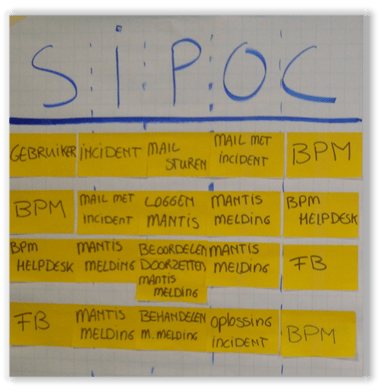 SIPOC
GEBRUIKER INCIDENT MAIL STUREN MAIL MET INCIDENT BPM
BPM MAIL MET INCIDENT LOGGEN MANTIS MANTIS MELDING BPM HELPDESK
BPM HELPDESK MANTIS MELDING BEOORDELEN DOORZETTEN MANTIS MELDING MANTIS MELDING FB
FB MANTIS MELDING BEHANDELEN M. MELDING OPLOSSING INCIDENT BPM